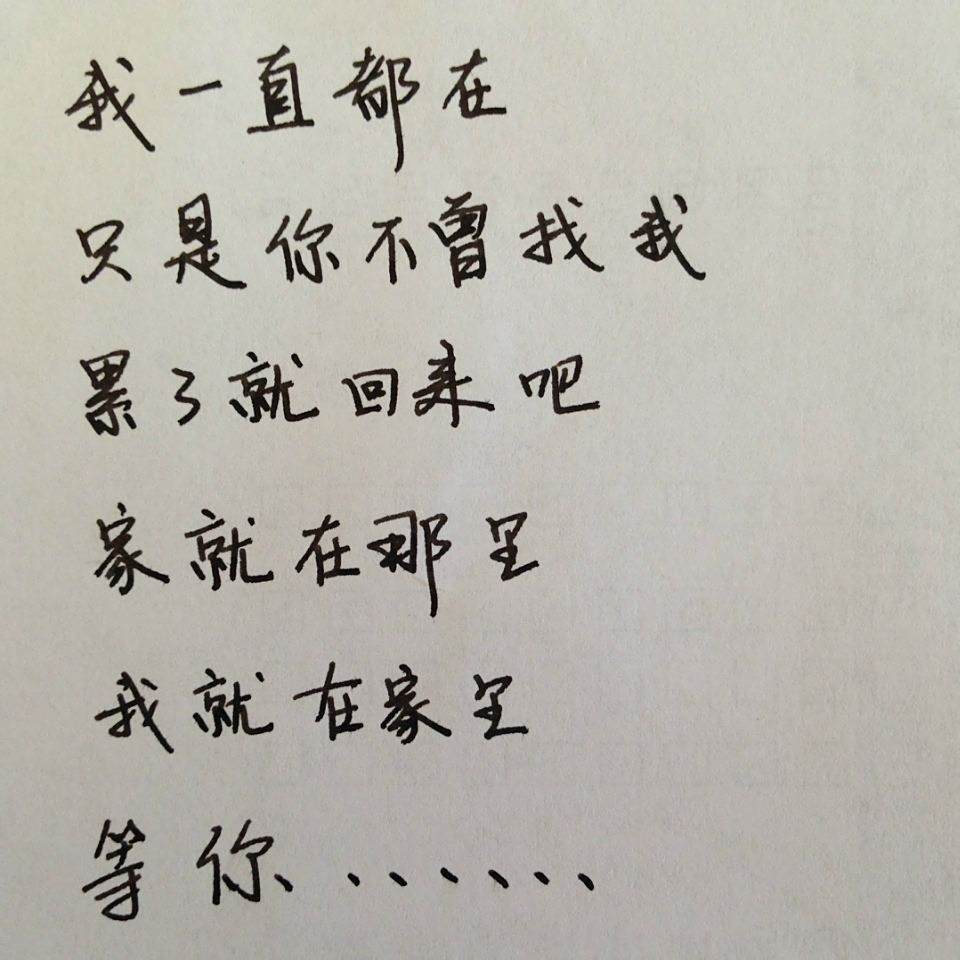 我一直都在
只是你不曾找我
累了就回来吧
家就在那里
我就在家里
等你......